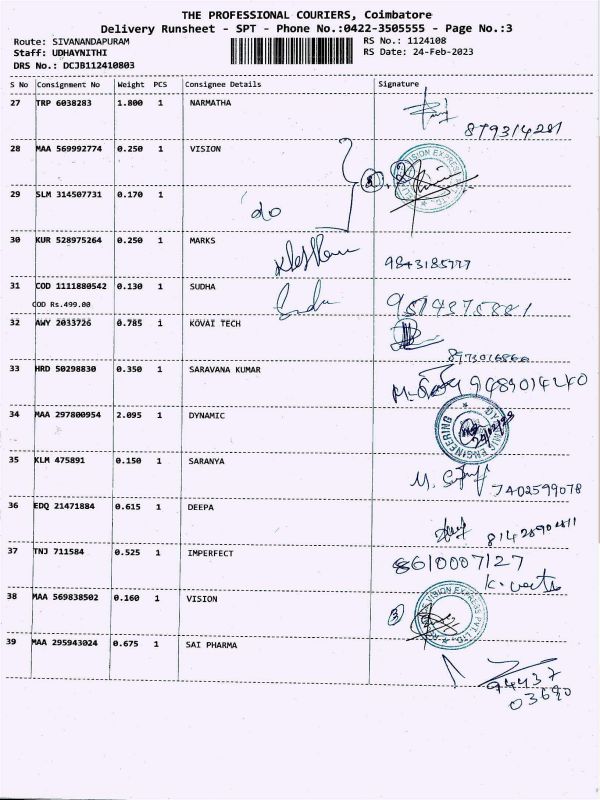 THE PROFESSIONAL COURIERS, Coimbatore
Delivery Runsheet - SPT - Phone No.:0422-3505555 - Page No.:3
Route: SIVANANDAPURAM RS No.: 1124108
Staff: UDHAYNITHI RS Date: 24-Feb-2023
DRS No.: DCJB112410803
S No Consignment No Weight PCS Consignee Details Signature
27 TRP 6038283 1.800 1 NARMATHA
879314281
28 MAA 569992774 0.250 1 VISION
29 SLM 314507731 0.170 1 do
30 KUR 528975264 0.250 1 MARKS
9843185777
31 COD 1111880542 0.130 1 SUDHA
COD Rs.499.00
32 AWY 2033726 0.785 1 KOVAI TECH
33 HRD 50298830 0.350 1 SARAVANA KUMAR
34 MAA 297800954 2.095 1 DYNAMIC
DYNAMIC ENGINEERING
35 KLM 475891 0.150 1 SARANYA
7402599078
36 EDQ 21471884 0.615 1 DEEPA
37 TNJ 711584 0.525 1 IMPERFECT
8610007127
38 MAA 569838502 0.160 1 VISION
VISION EXPRESS
39 MAA 295943024 0.675 1 SAI PHARMA
94437
03690